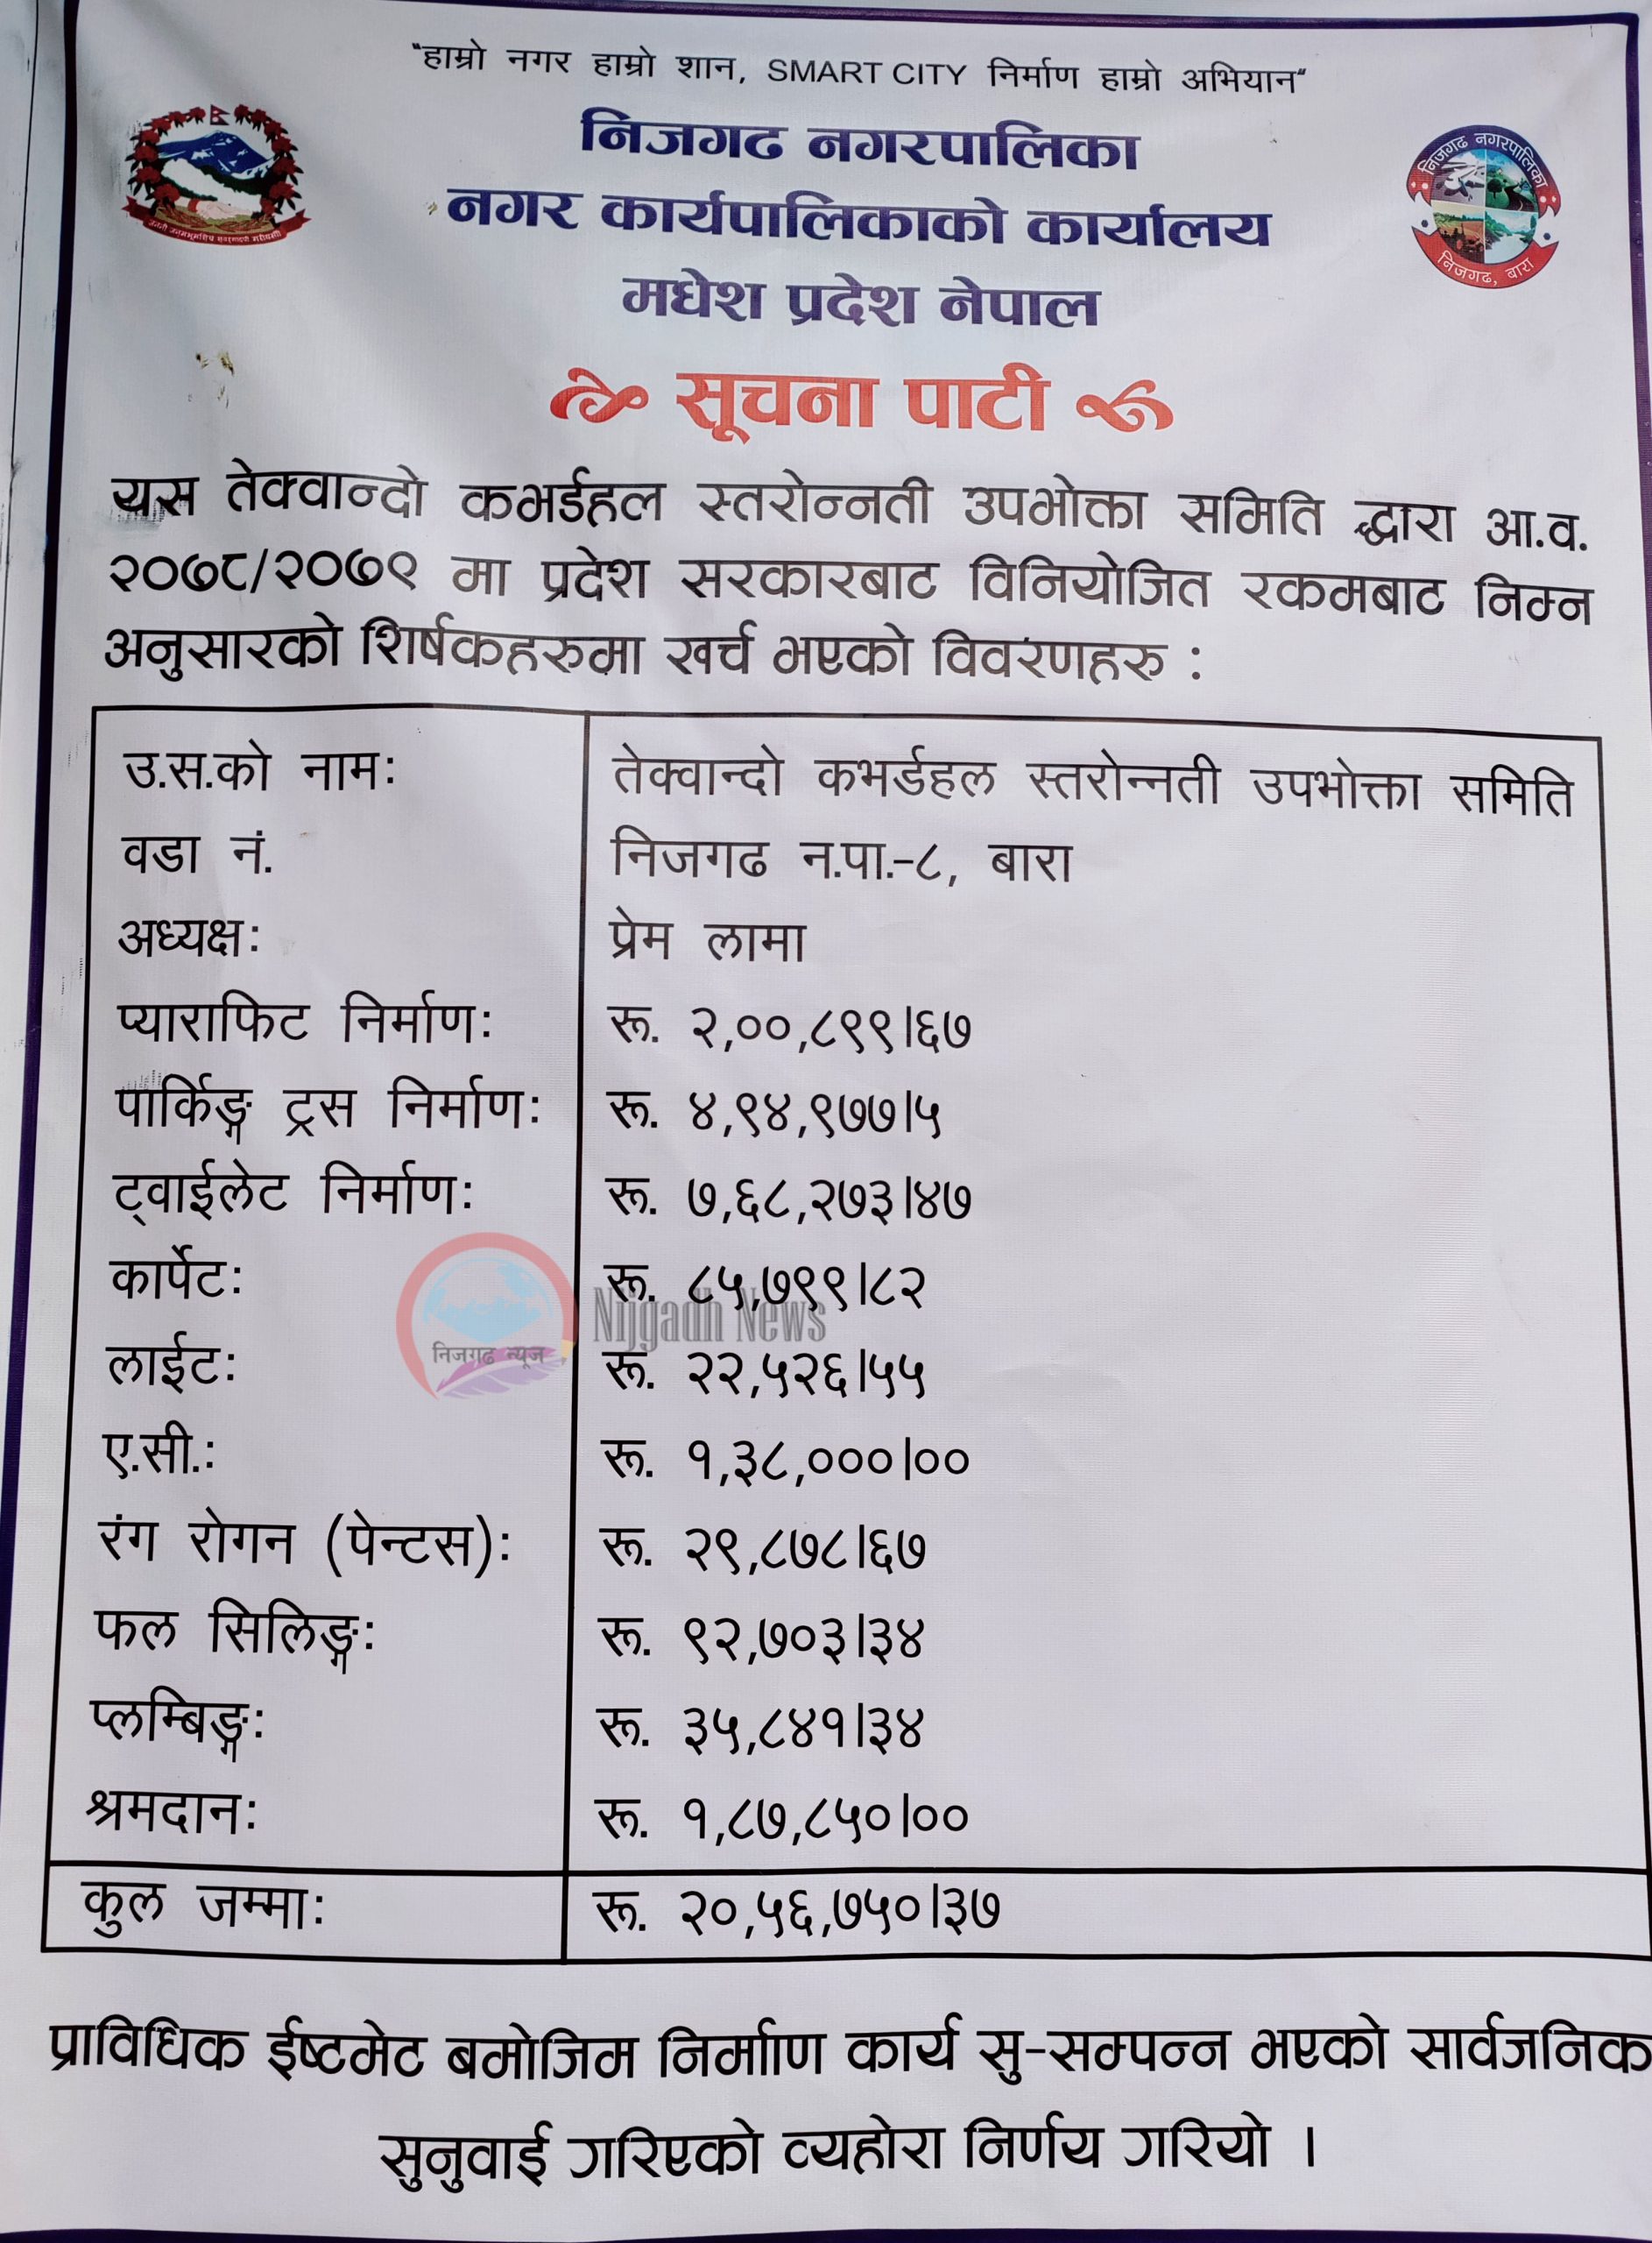 "हाम्रो नगर हाम्रो शान, SMART CITY निर्माण हाम्रो अभियान"
निजगढ नगरपालिका
नगर कार्यपालिकाको कार्यालय
मधेश प्रदेश नेपाल
निजगढ नगरपालिका
निजगढ, बारा
सूचना पाटी
यस तेक्वान्दो कभर्डहल स्तरोन्नती उपभोक्ता समिति द्धारा आ.व.
२०७८/२०७९ मा प्रदेश सरकारबाट विनियोजित रकमबाट निम्न
अनुसारको शिर्षकहरुमा खर्च भएको विवरणहरु :
उ.स.को नामः तेक्वान्दो कभर्डहल स्तरोन्नती उपभोक्ता समिति
वडा नं. निजगढ न.पा.-८, बारा
अध्यक्षः प्रेम लामा
प्याराफिट निर्माणः रू. २,००,८९९।६७
पार्किङ्ग ट्रस निर्माणः रू. ४,९४,९७७।५
ट्वाईलेट निर्माणः रू. ७,६८,२७३।४७
कार्पेटः रू. ८५,७९९।८२
निजगढ न्यूज Nijgadh News
लाईटः रू. २२,५२६।५५
ए.सी.ः रू. १,३८,०००।००
रंग रोगन (पेन्टस)ः रू. २९,८७८।६७
फल सिलिङ्गः रू. ९२,७०३।३४
प्लम्बिङ्गः रू. ३५,८४१।३४
श्रमदानः रू. १,८७,८५०।००
कुल जम्माः रू. २०,५६,७५०।३७
प्राविधिक ईष्टमेट बमोजिम निर्मााण कार्य सु-सम्पन्न भएको सार्वजनिक
सुनुवाई गरिएको व्यहोरा निर्णय गरियो ।